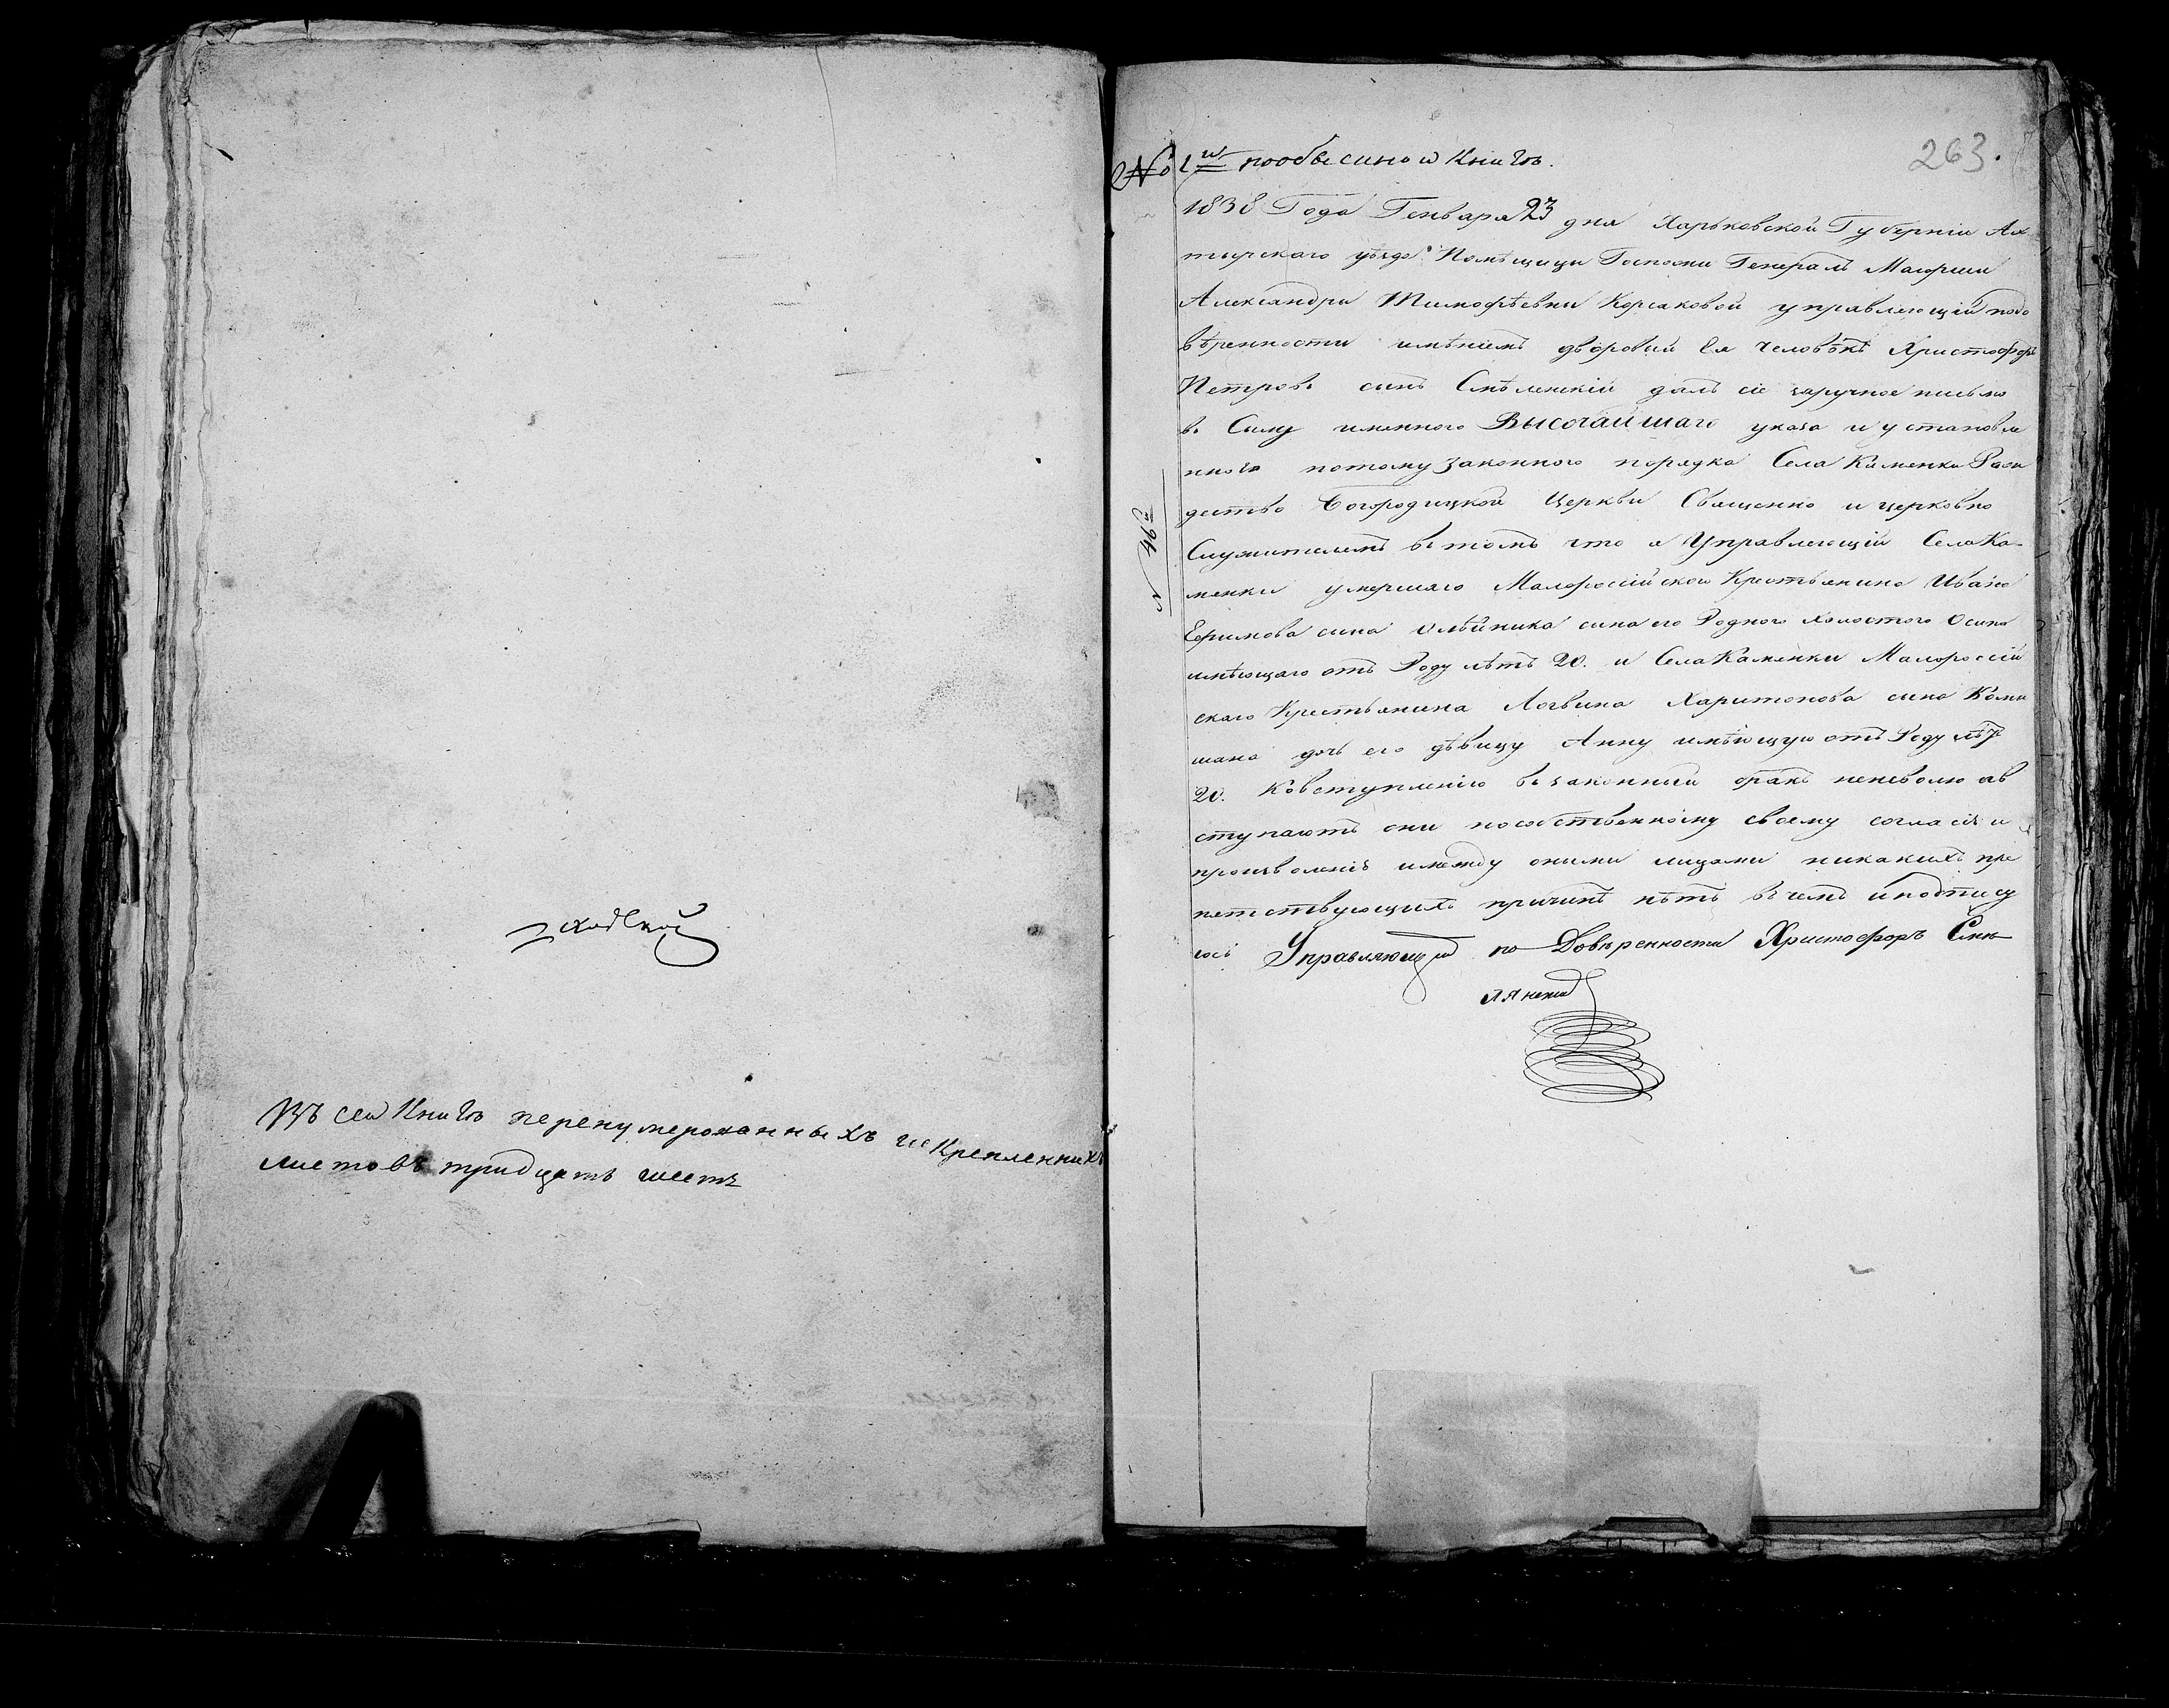 ходской
Въ сей Книгѣ перенумерованныхъ и скрепленныхъ
листовъ тридцать шесть
263.
№ 1й пообыскной Книгѣ.
1838 Года Генваря 23 дня Харьковской Губерніи Ах
тырскаго уѣзда Помѣщицы Госпожи Генералъ Маіорши
Александры Тимофѣевны Корсаковой управляющій подо
вѣренности имѣніемъ дворовый Ея человѣкъ Христофоръ
Петровъ сынъ Смѣлянскій далъ сіе заручное письмо
въ Силу имянного Высочайшаго указа и установле
нного потому законного порядка Села Каменки Рож
дество Богородицкой Церкви Священно и церковно
Служителемъ въ томъ что я Управляющій Села Ка-
менки умершаго Малороссійскои Крестьянина Ивана
Ефимова сина Олѣйника сина его Родного холостого Осипа
имѣющаго отъ Роду лѣтъ 20. и Села Каменки Малороссій
скаго Крестьянина Логвина Харитонова сина
шана дочь его дѣвицу Анну имѣющую отъ Роду лѣтъ
20. Ковступленію въ законный бракъ неневолю а в
ступаютъ они пособственному своему согласія и
произволенія имежду оними лицами никакихъ пре
пятствующихъ причинъ нѣтъ въ чемъ иподпису
юсь Управляющій по Довѣренности Христофоръ Смѣ
лянскій